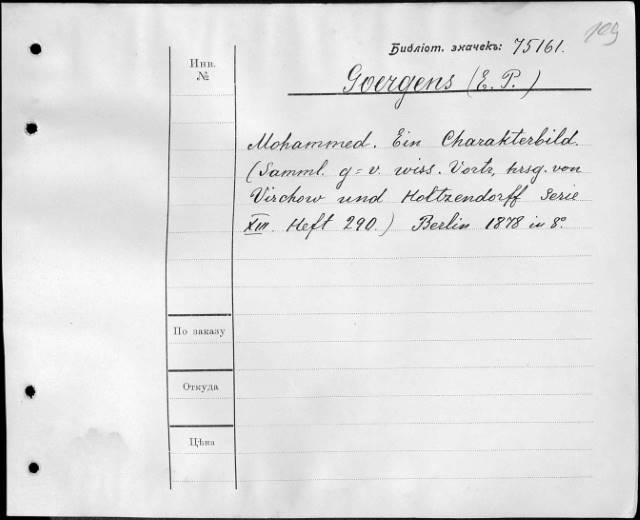 109
Библіот. значекъ: 75161.
Goergens (E. P.)
Инв.
№
Mohammed. Ein Charakterbild.
(Samml. g=v. wiss. Vortr, hrsg. von
Virchow und Holtzendorff Serie
XIII. Heft 290.) Berlin 1878 in 8º.
По заказу
Откуда
Цѣна